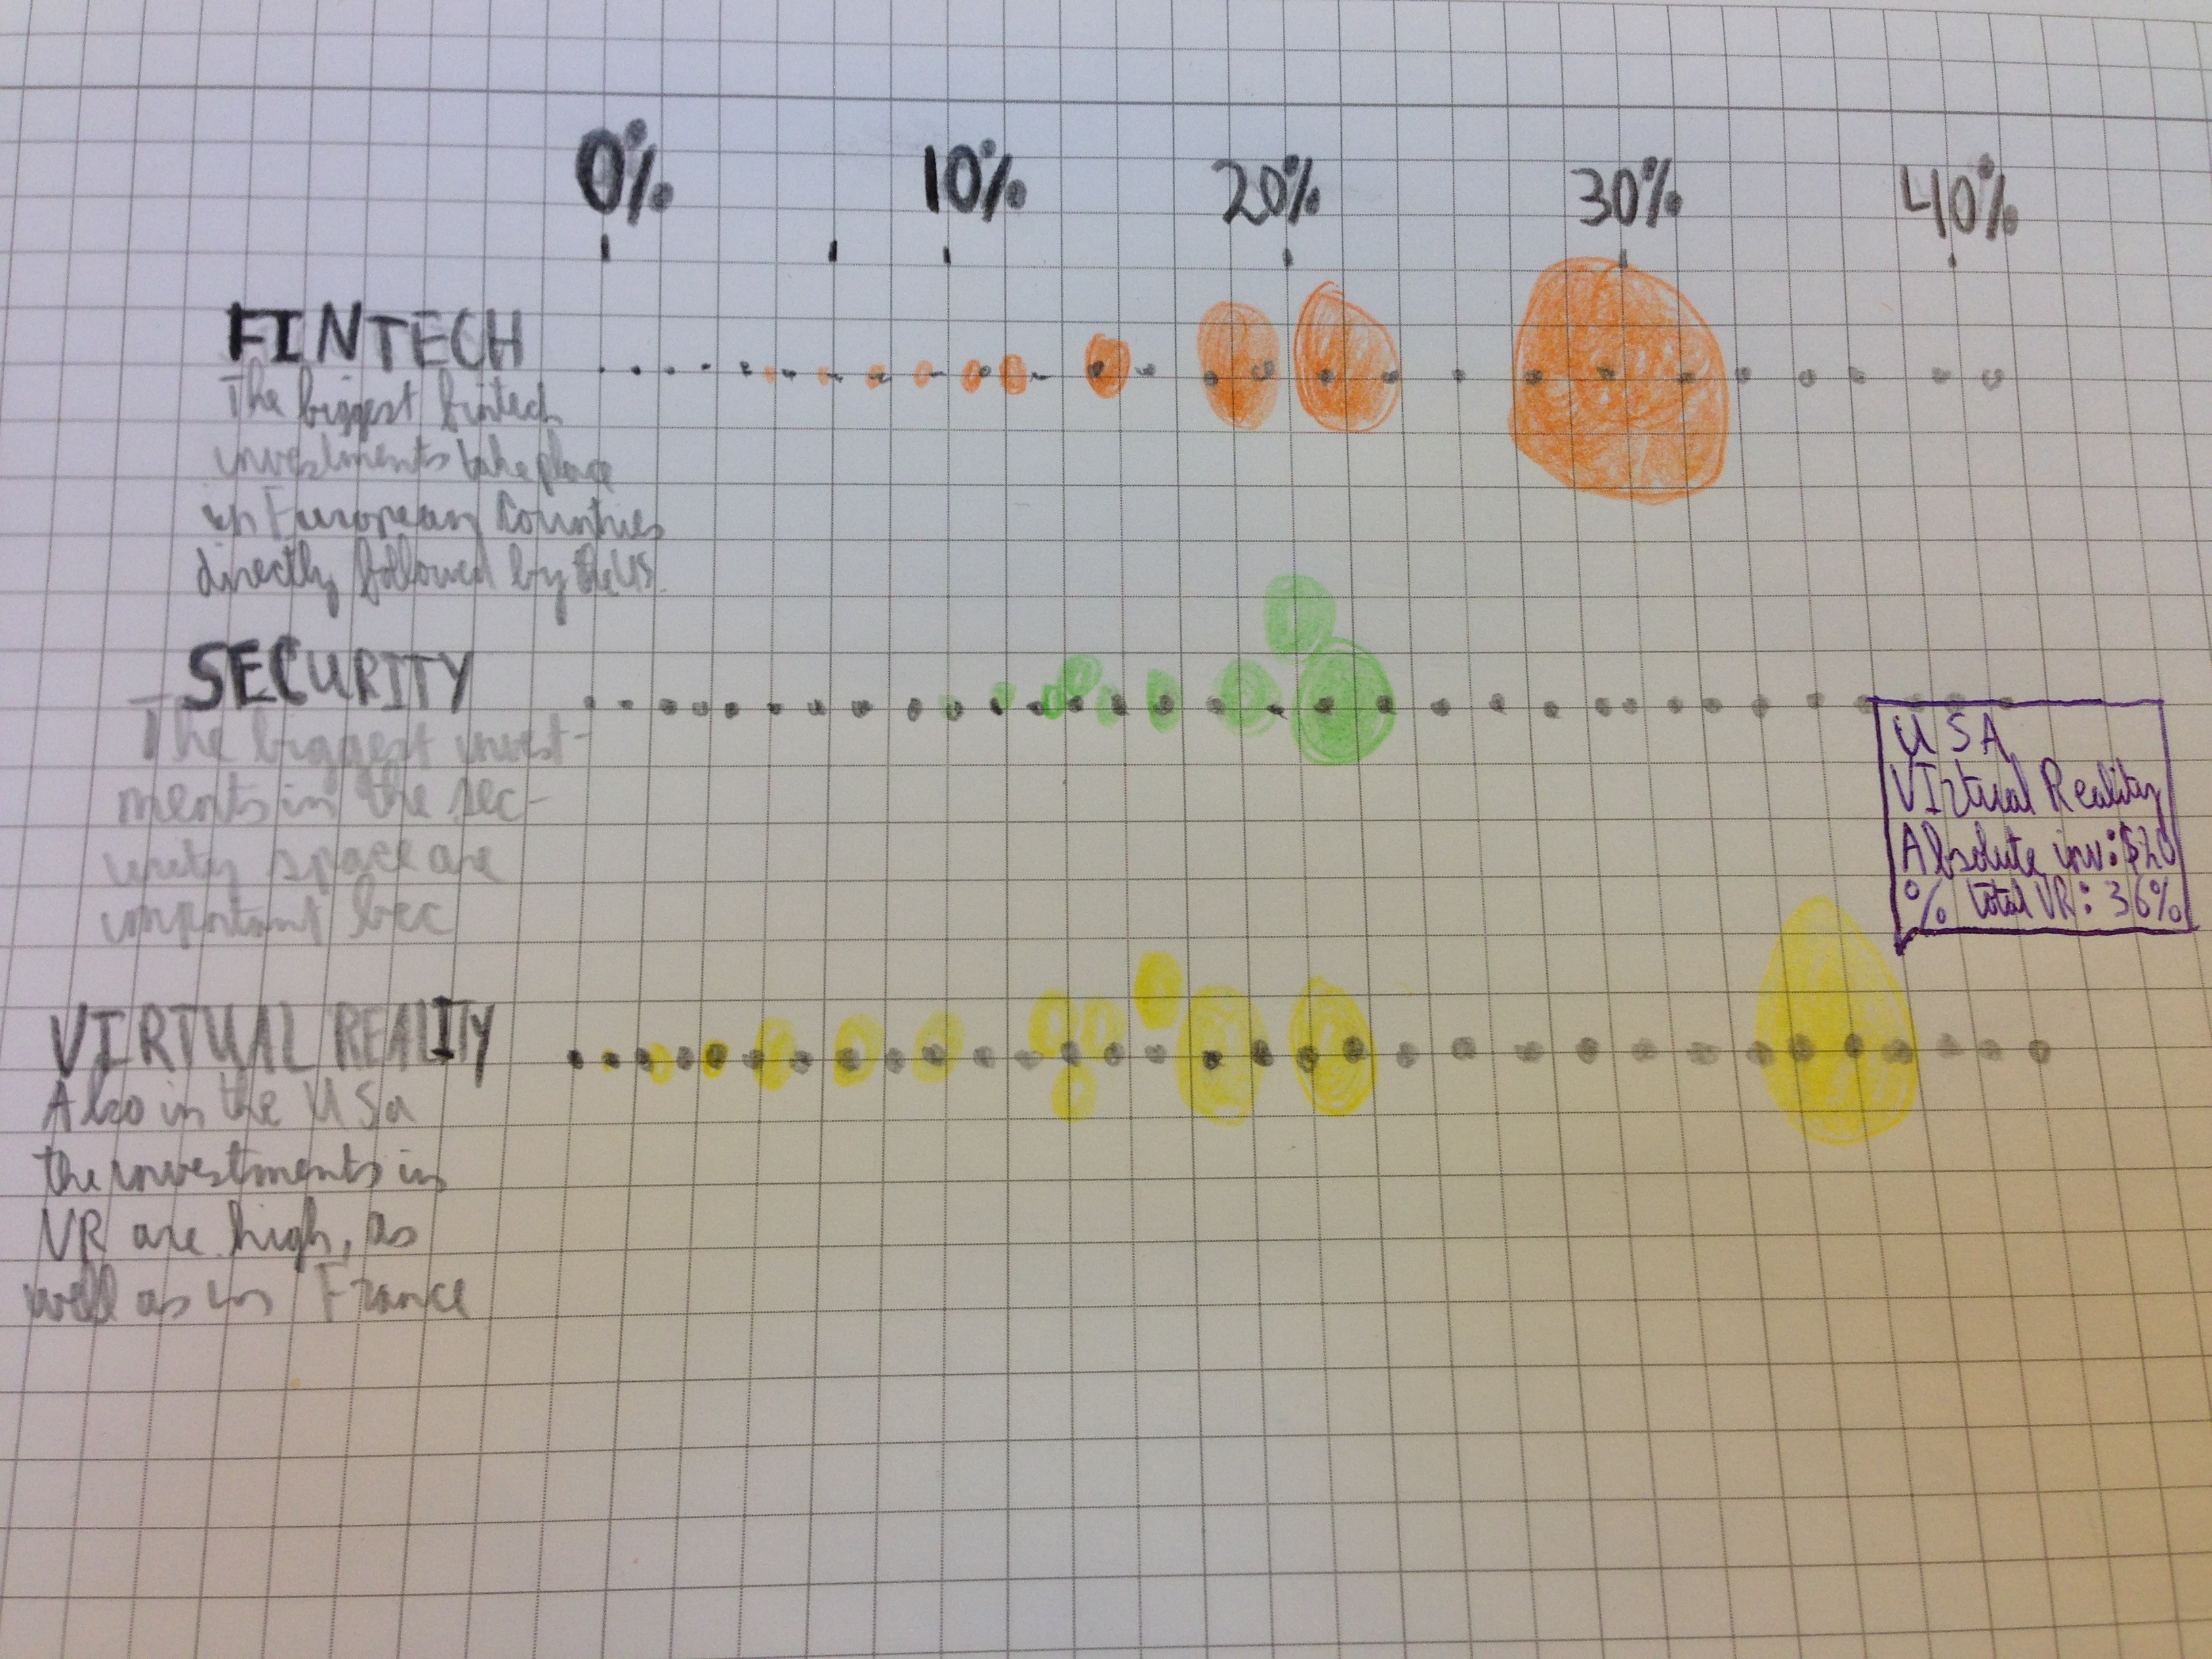 0% 10% 20% 30% 40%
FINTECH
The biggest fintech
investments take place
in European Countries
directly followed by the US.
SECURITY
The biggest invest-
ments in the sec-
urity space are
important bec
USA
VIrtual Reality
Absolute inv: $20
% total VR: 36%
VIRTUAL REALITY
Also in the USa
the investments in
VR are high, as
well as in France